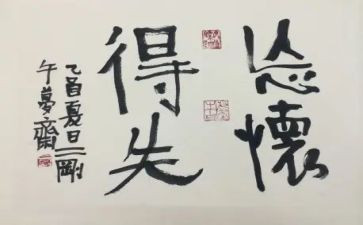 忘懷
得失
乙酉夏日二剛
午夢齋